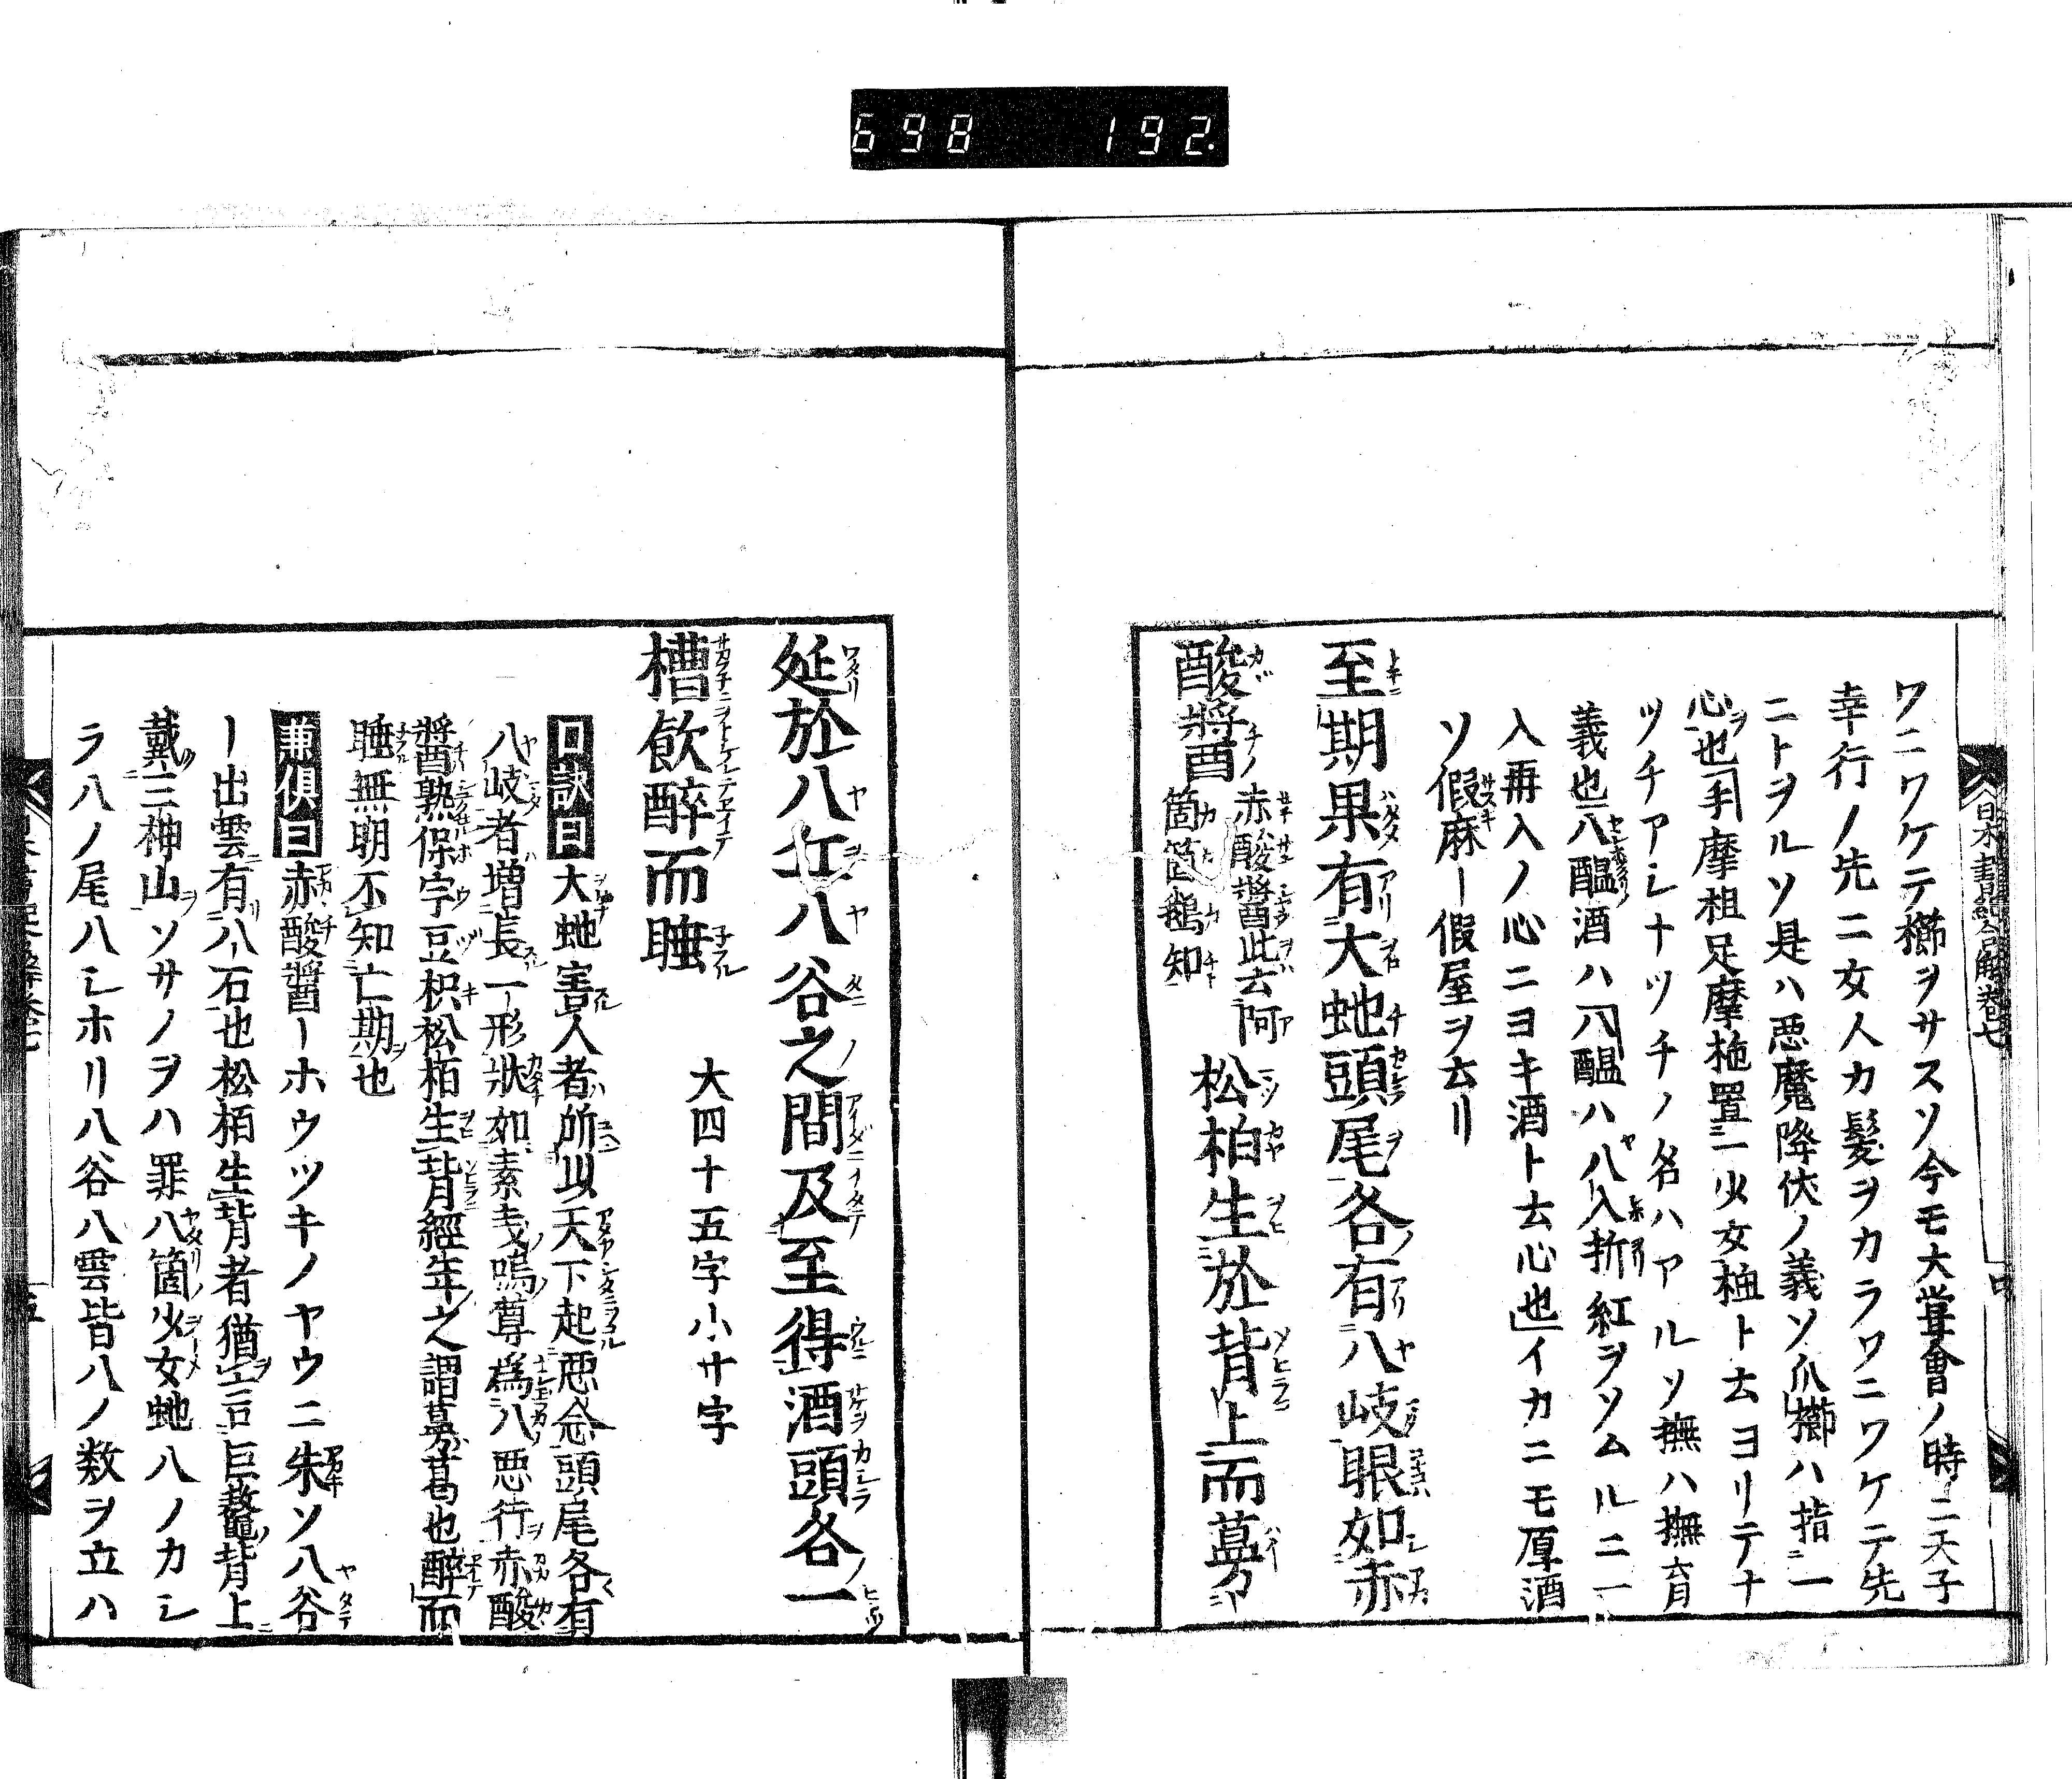 698 192.
日本書紀合解巻七
ワニワケテ櫛ヲサスソ今モ大甞會ノ時ニ天子
幸行ノ先ニ女人カ髪ヲカラワニワケテ先
ニトヲルソ是ハ悪魔降伏ノ義ソ爪櫛ハ揩ニ一
心也手摩祖足摩拖置一少女𣖾ト云ヨリテナ
ツチアシナツチノ名ハアルソ撫ハ撫育
義也八醞酒ハ八醞ハ八入折紅ヲソムルニ一
入再入ノ心ニヨキ酒ト云心也イカニモ厚酒
ソ假麻ー假屋ヲ云リ
至期果有大虵頭尾各有八岐眼如赤
酸醤
赤酸醤此云阿
箇箇鵝知
松柏生於背上而蔓
延於八丘八谷之間及至得酒頭各一
槽飲醉而睡
大四十五字小廿字
口訣曰大虵害人者所以天下起悪念頭尾各有
八岐者増長一形狀如素戔嗚尊為八悪行赤酸
醤熟保宇豆枳松栢生背經年之謂蔓葛也醉而
睡無明不知亡期也
兼倶曰赤酸醤ーホウツキノヤウニ朱ソ八谷
ー出雲有八石也松栢生背者猶言巨鼇背上
戴三神山ソサノヲハ罪八箇少女虵八ノカシ
ラ八ノ尾八シホリ八谷八雲皆八ノ数ヲ立ハ